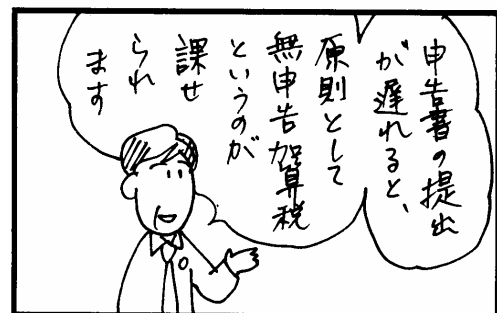 申告書の提出
が遅れると、
原則として
無申告加算税
というのが
課せ
られ
ます